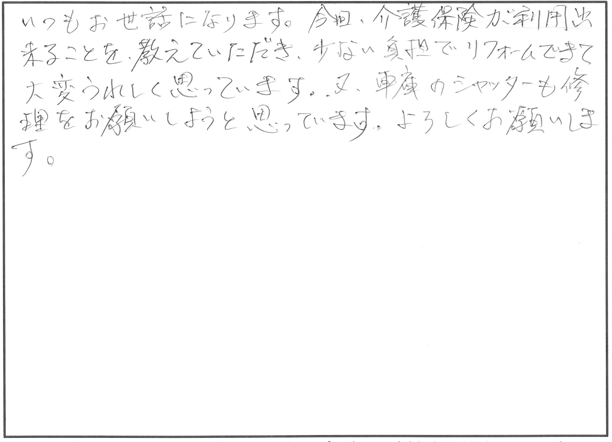 いつもお世話になります。今回、介護保険が利用出
来ることを、教えていただき、少ない負担でリフォームできて
大変うれしく思っています。又、車庫のシャッターも修
理をお願いしようと思っています。よろしくお願いしま
す。